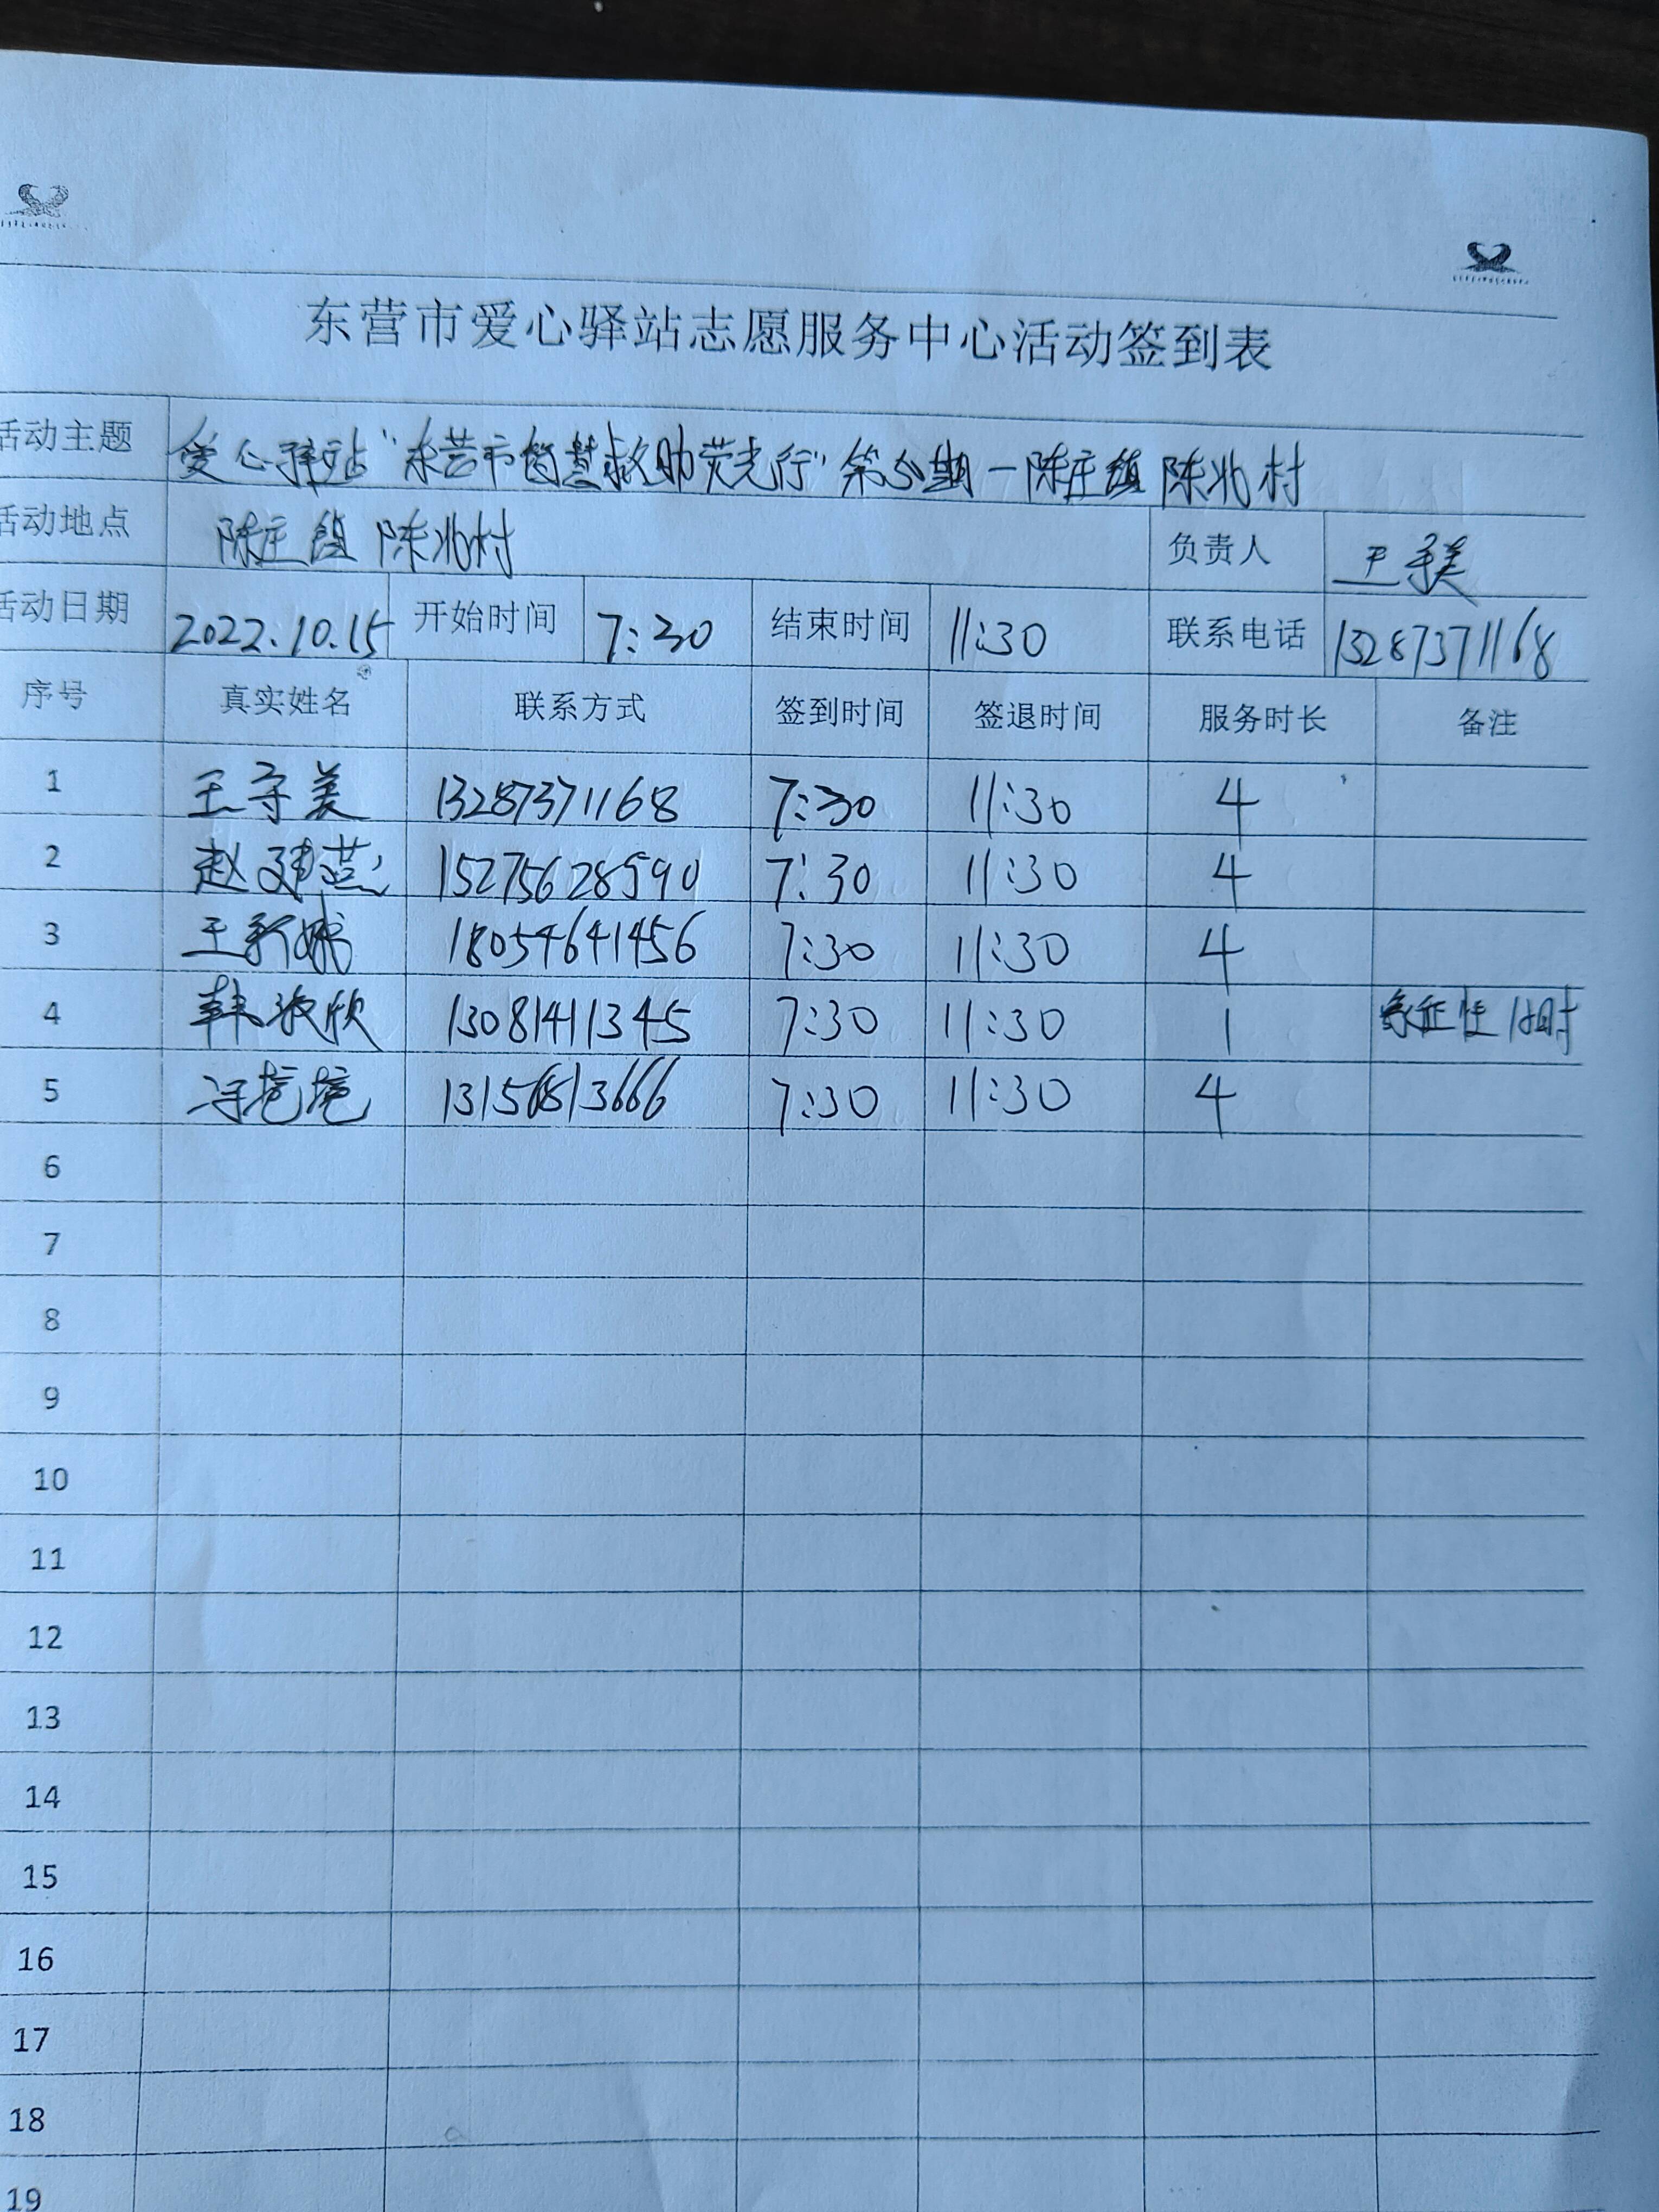 东营市爱心驿站志愿服务中心活动签到表
活动主题 爱心驿站"东营市智慧救助荧光行"第5期—陈庄镇 陈北村
活动地点 陈庄镇 陈北村 负责人 王守美
活动日期 2022.10.15 开始时间 7:30 结束时间 11:30 联系电话 13287371168
序号 真实姓名 联系方式 签到时间 签退时间 服务时长 备注
1 王守美 13287371168 7:30 11:30 4
2 赵建燕 15275628990 7:30 11:30 4
3 王新娥 18054641456 7:30 11:30 4
4 韩淑欣 13081411345 7:30 11:30 1 象征性1小时
5 7:30 11:30 4
6
7
8
9
10
11
12
13
14
15
16
17
18
19